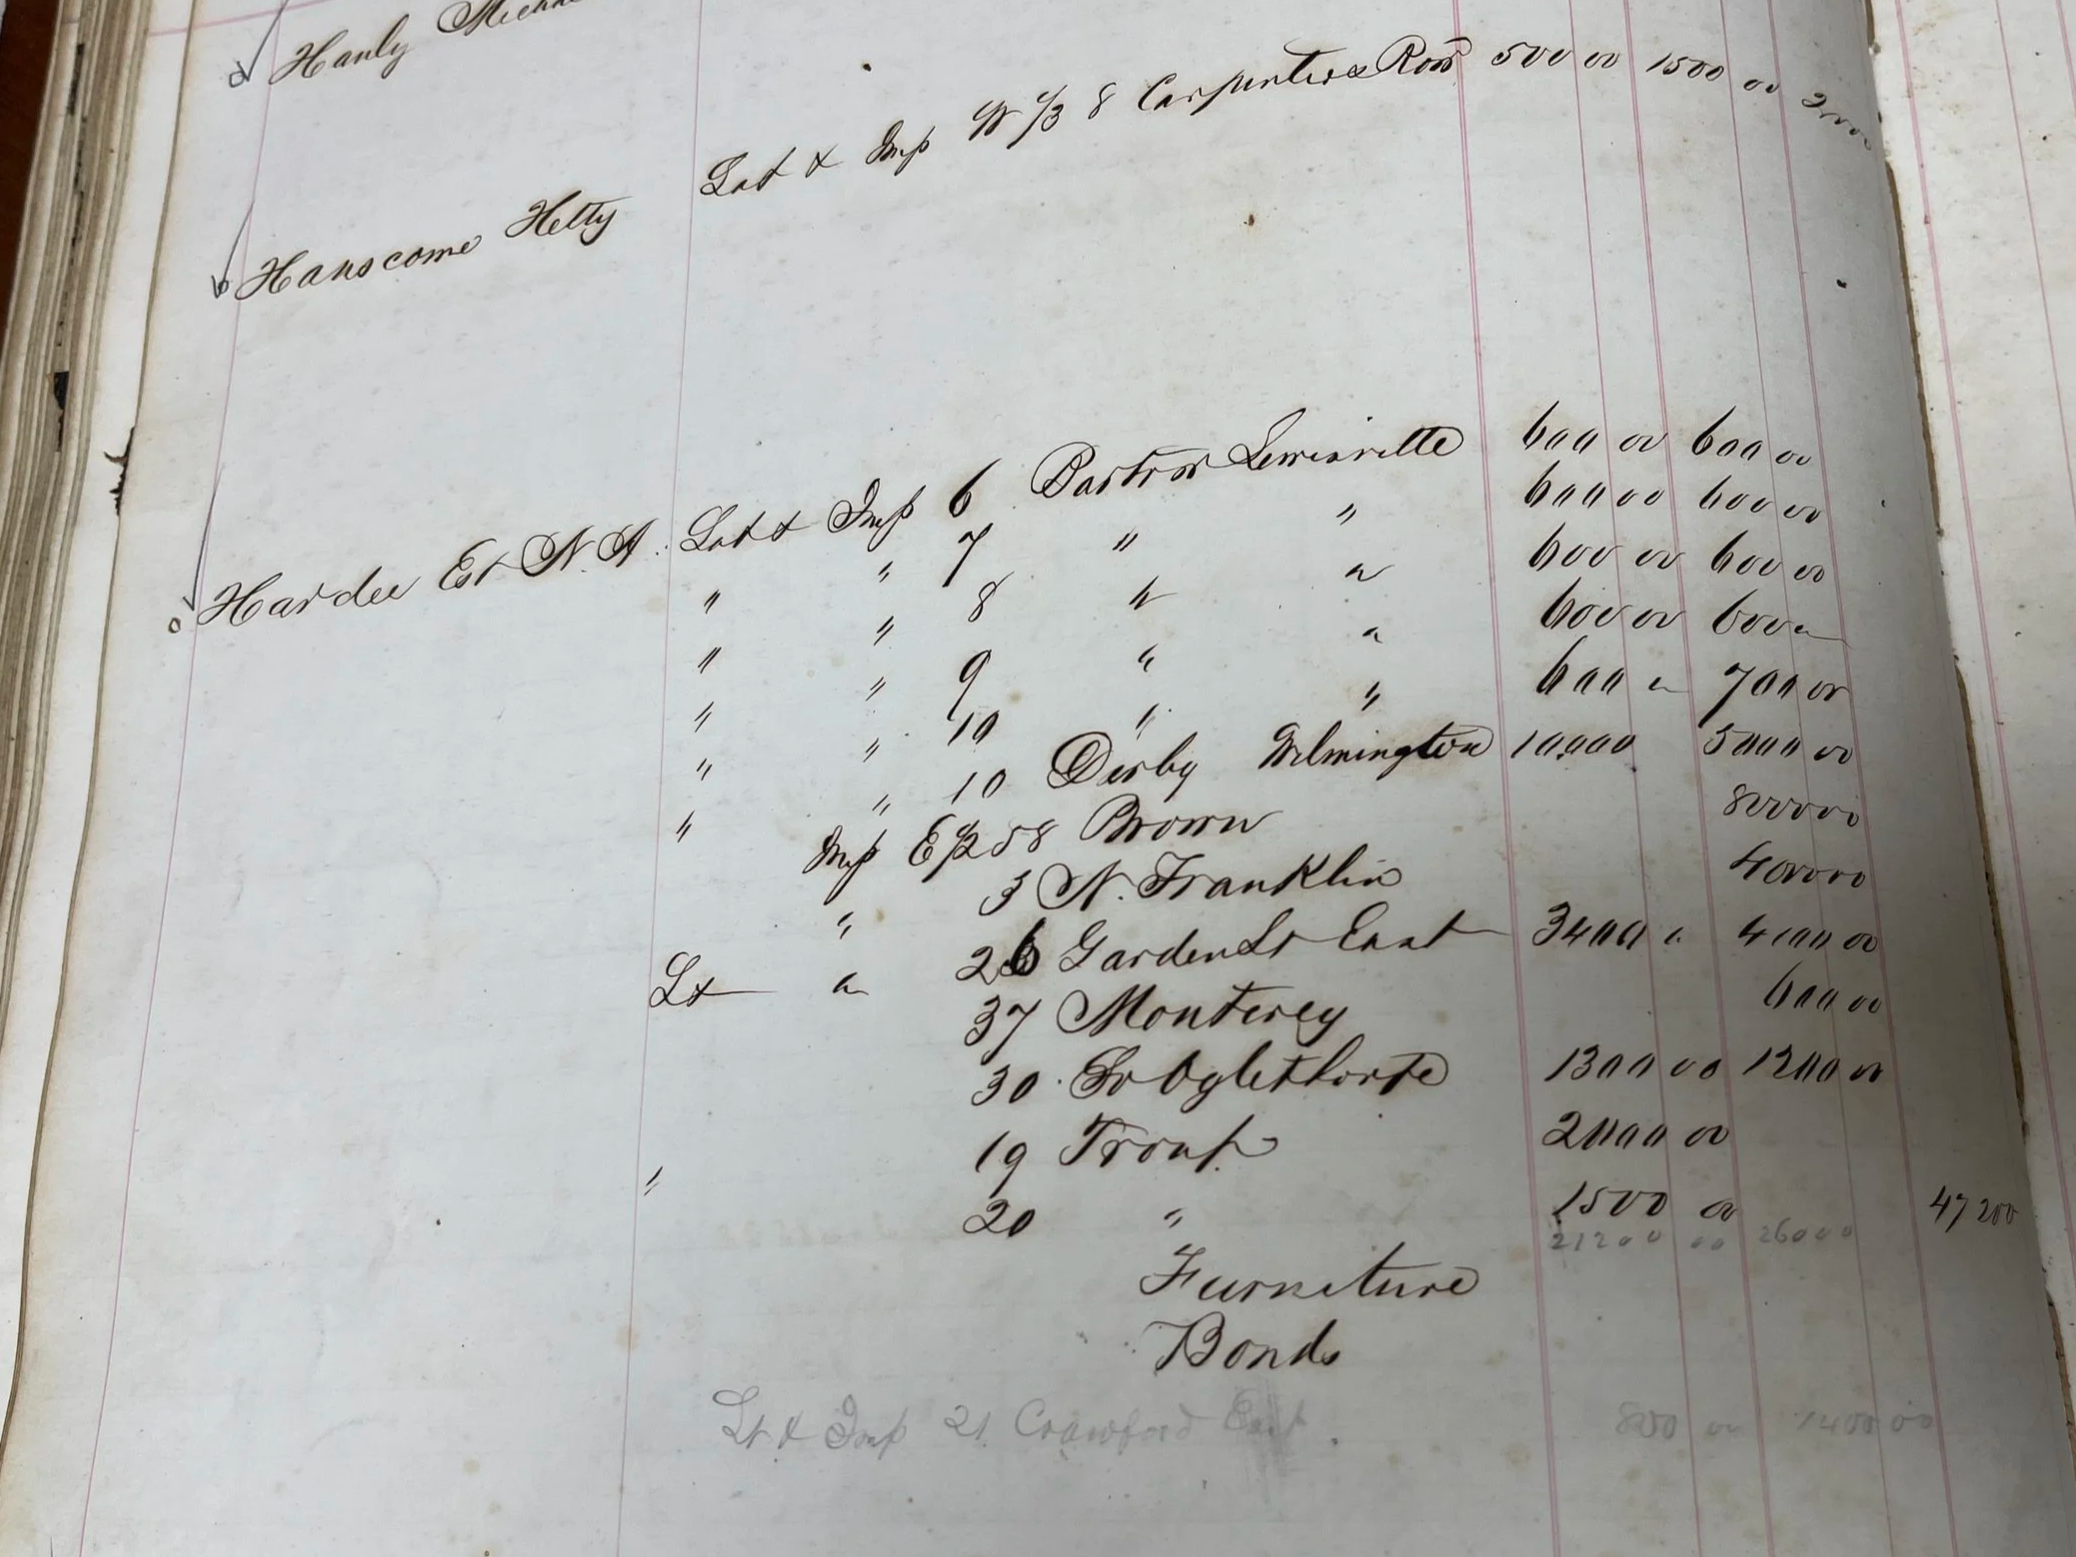 Hanly Micha
Lot & Imp W 1/3 8 Carpenters Row 500 00 1500 00 2000
Hanscome Hetty
Hardee Est N. A. Lot & Imp 6 Bartow Lewisville 600 00 600 00
" " 7 " " 600 00 600 00
" " 8 " " 600 00 600 00
" " 9 " " 600 00 600 00
" " 10 " " 600 00 700 00
" " 10 Derby Wilmington 10,000 5000 00
Imp E 1/2 58 Brown 8000 00
" 3 N. Franklin 4000 00
Lt " 26 Garden Lt East 3400 00 4000 00
37 Monterey 600 00
30 So Oglethorpe 1300 00 1200 00
" 19 Troup 2000 00
20 " 1500 00 47200
21200 00 26000
Furniture
Bonds
Lt & Imp 21 Crawford East 800 00 1400 00